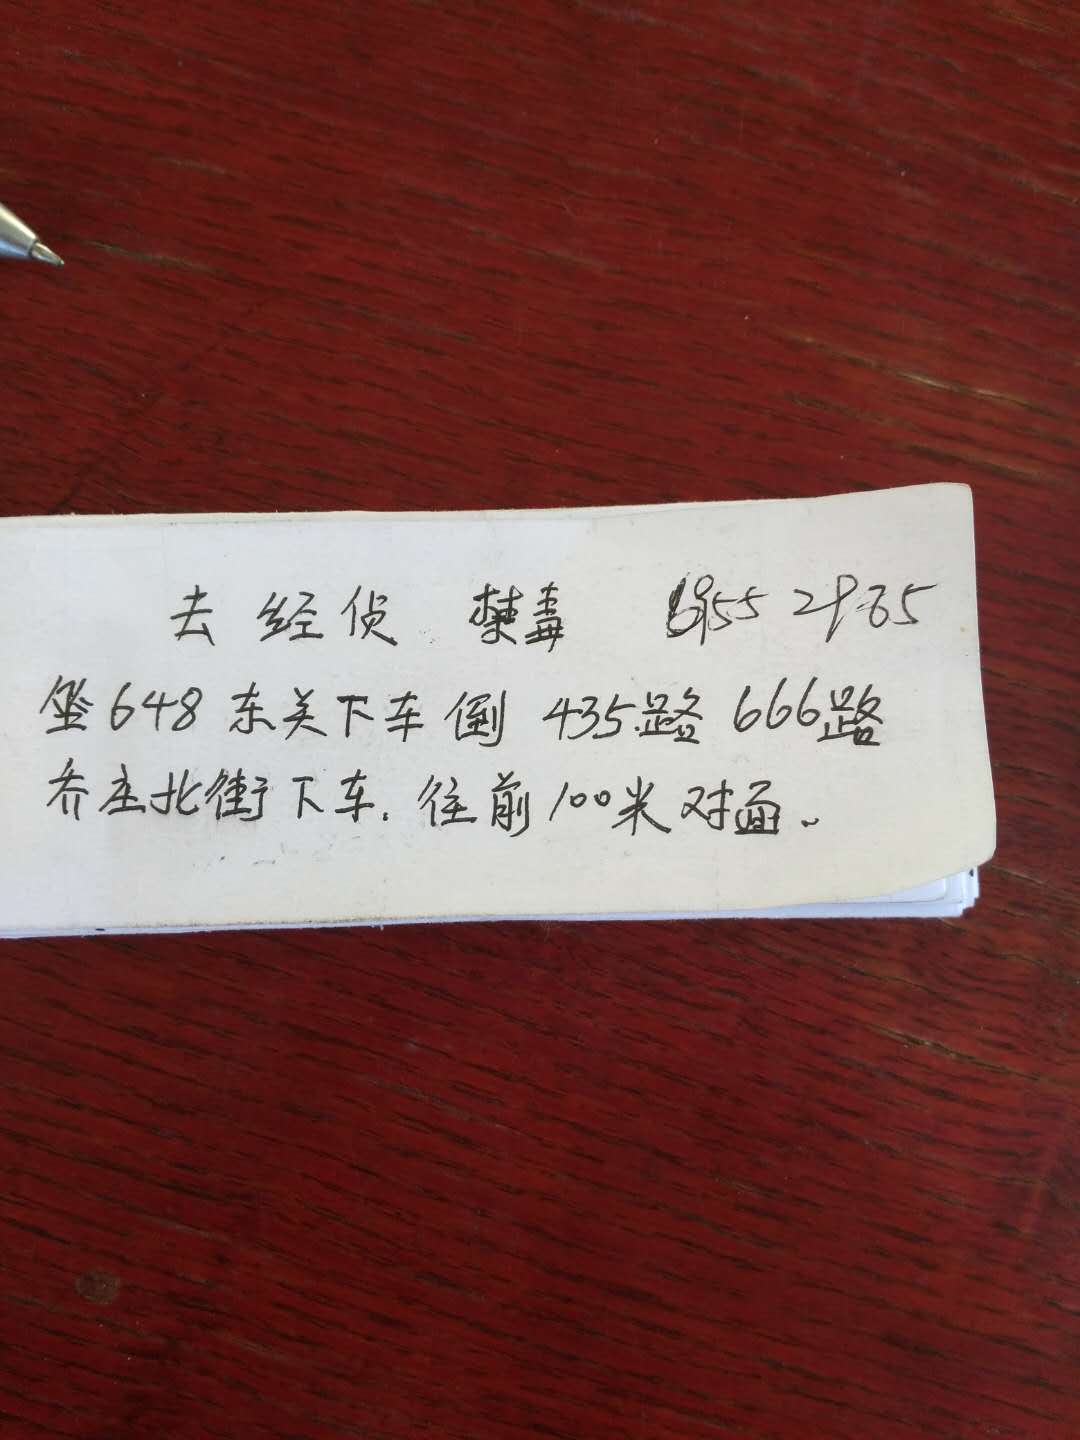 去 经侦 禁毒
坐648东关下车倒 435路 666路
乔庄北街下车. 往前100米对面、